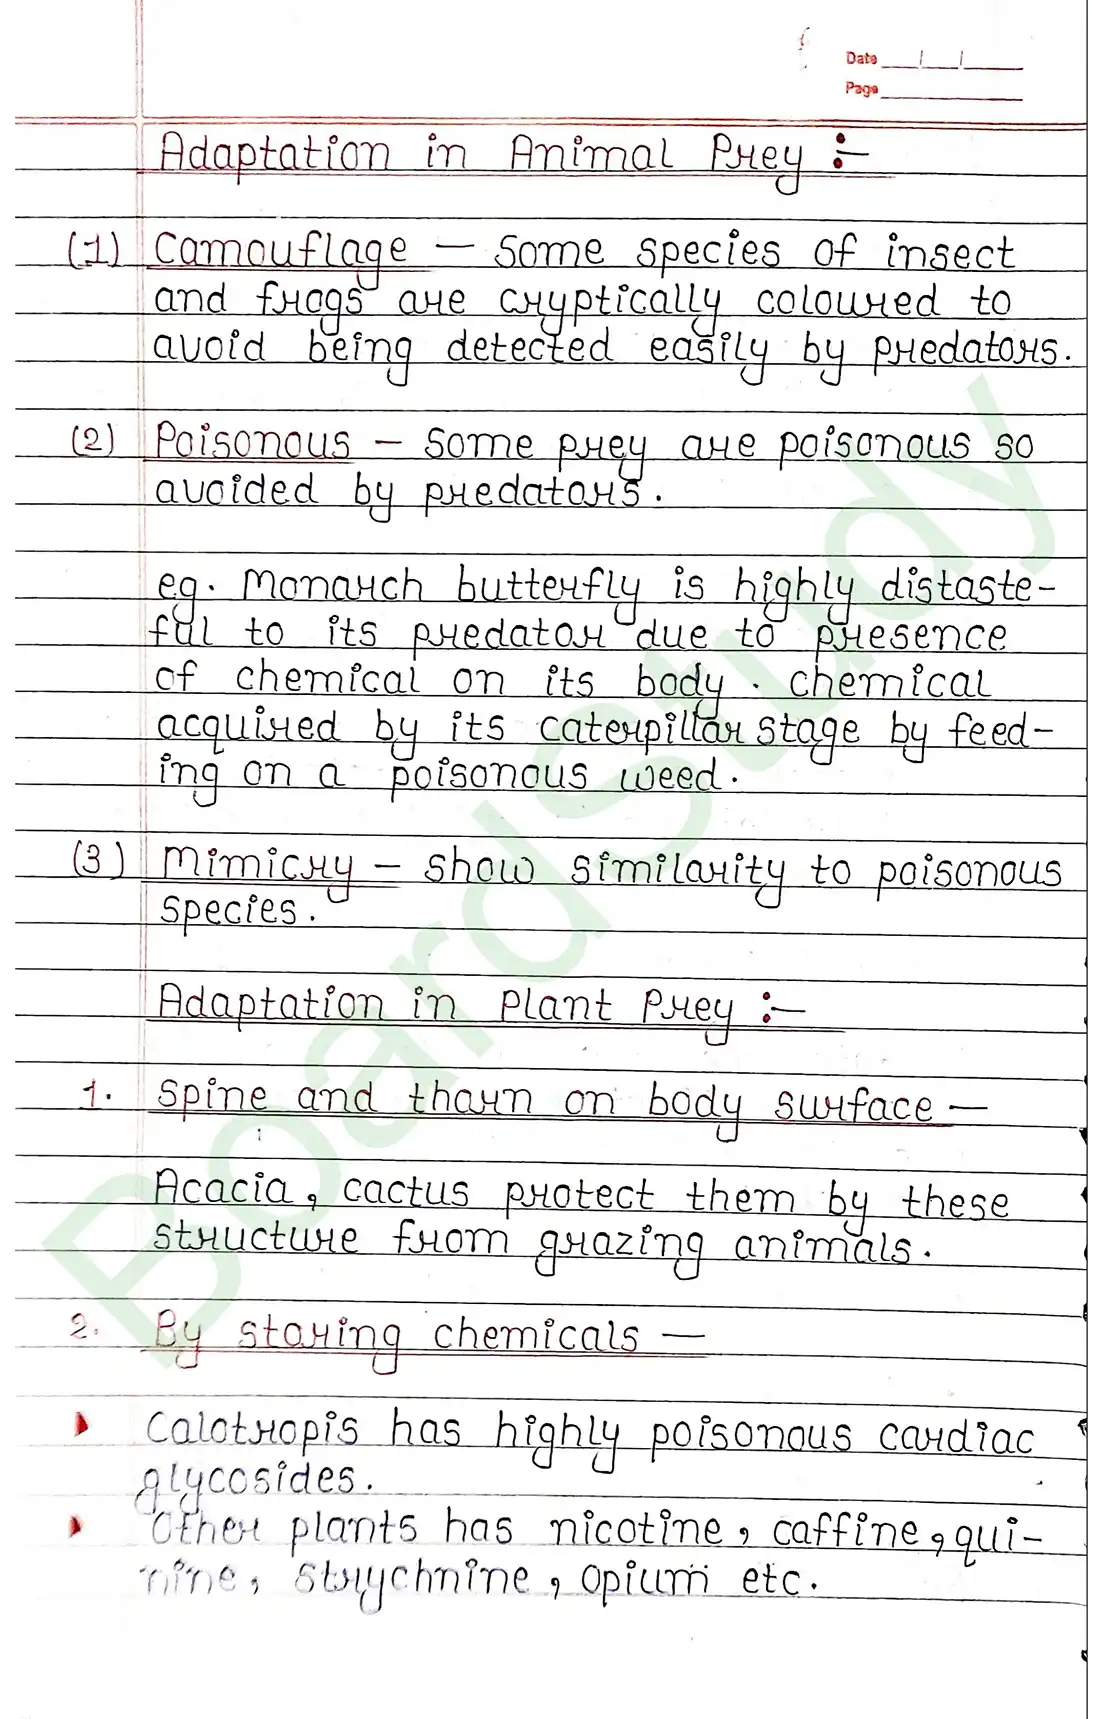 Date
Page
Adaptation in Animal Prey :-
(1) Camouflage - Some species of insect
and frogs are cryptically coloured to
avoid being detected easily by predators.
(2) Poisonous - Some prey are poisonous so
avoided by predators.
eg. Monarch butterfly is highly distaste-
ful to its predator due to presence
of chemical on its body. chemical
acquired by its caterpillar stage by feed-
ing on a poisonous weed.
(3) Mimicry - Show similarity to poisonous
species.
Adaptation in Plant Prey :-
1. Spine and thorn on body surface -
Acacia, cactus protect them by these
structure from grazing animals.
2. By storing chemicals -
Calotropis has highly poisonous cardiac
glycosides.
Other plants has nicotine, caffine, qui-
nine, strychnine, opium etc.
BoardStudy